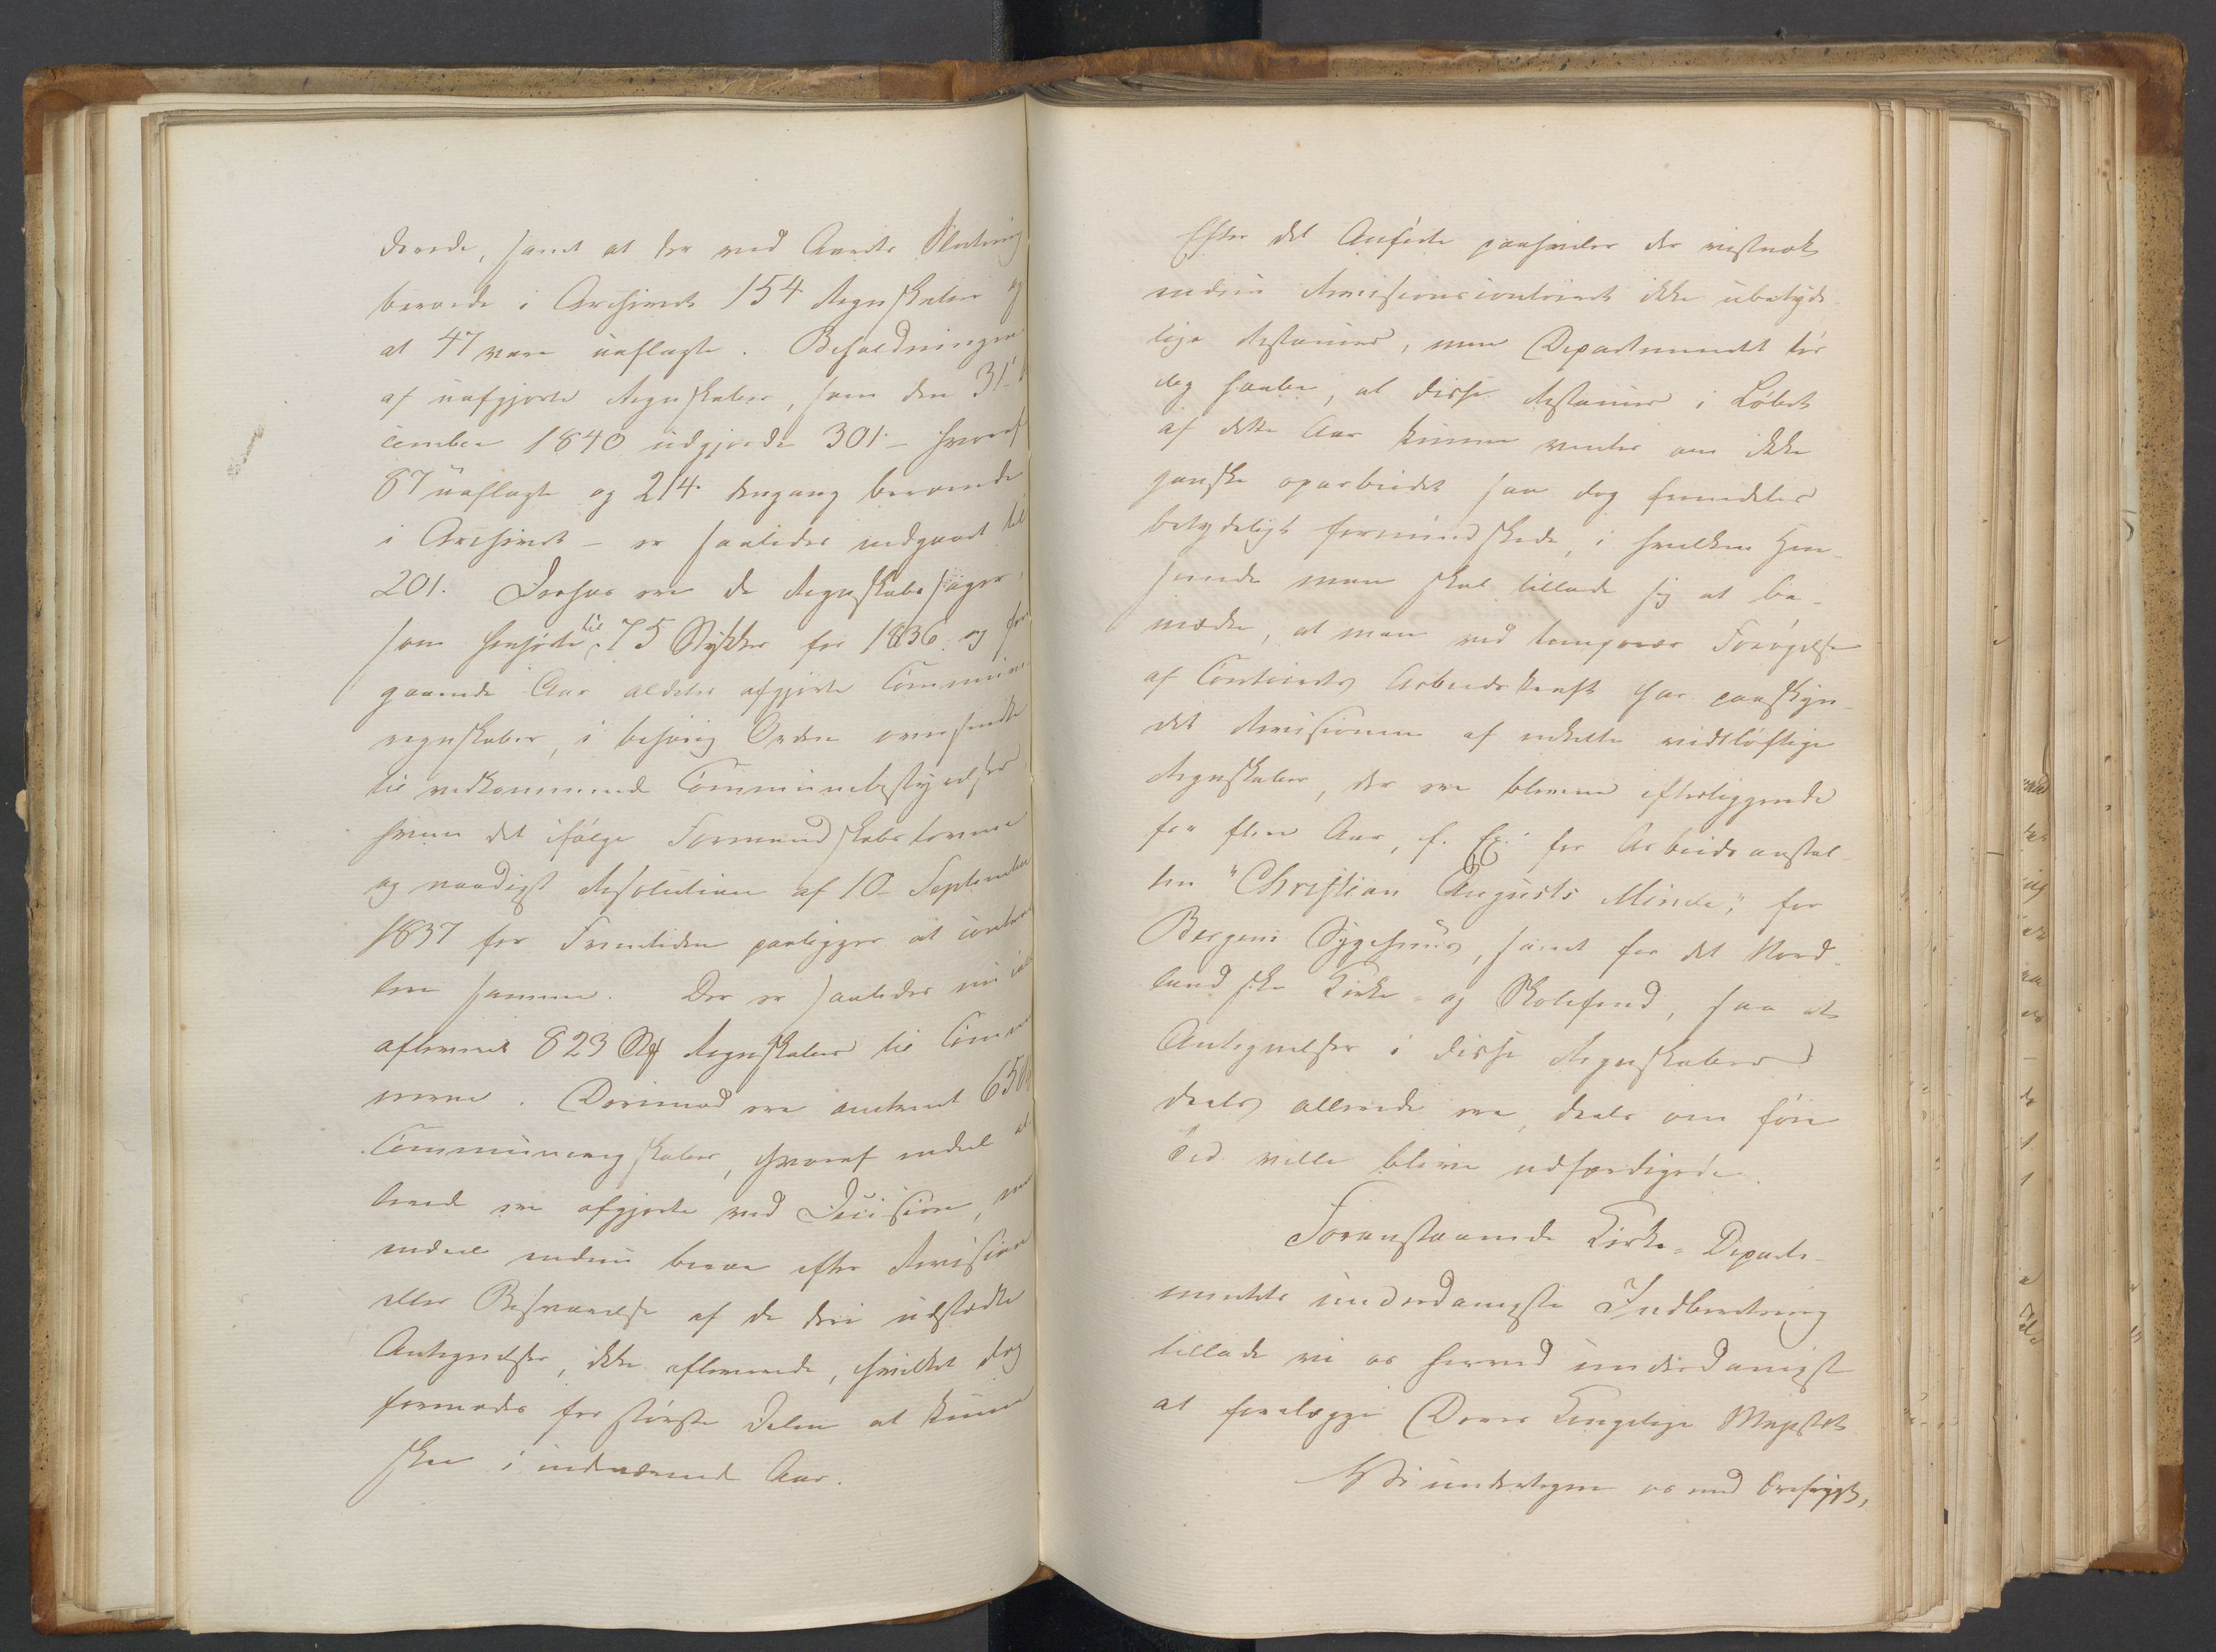 derede, samt at der ved Aarets Slutning
beroede i Archivet 154 Regnskaber og
at 47 vare uaflagte. Beholdningen
af uafgjorte Regnskaber, som den 31
cember 1840 udgjorde 301 – hvoraf
87 uaflagte og 214 dengang beroende
i Archivet – er saaledes nedgaaet til
201. Derhos ere de Regnskabssager,
som henhørte til 75 Stykker for 1836 og for
gaaende Aar aldeles afgjorte Commune
regnskaber, i behørig Orden oversendte
til vedkommende Communebestyrelser
hvem det ifølge Formandskabslovene
og naadigst Resolution af 10 September
1837 for Fremtiden paaligger at
samme. Der er saaledes nu
afleveret 823 Regnskaber til Commu
nerne. Derimod ere omtrent 650
Communeregnskaber, hvoraf endeel al
lerede ere afgjorte ved Decision, men
endeel endnu beroe efter Revision
eller Besvarelse af de deri udstedte
Antegnelser, ikke afleverede, hvilket dog
formodes for største Delen at kunne
skee i indeværende Aar.
Efter det Anførte paahviler der vistnok
endnu Revisionscontoiret ikke ubetyde
lige Restancer, men Departementet tør
dog haabe, at disse Restancer i Løbet
af dette Aar kunne ventes om ikke
ganske oparbeidet saa dog fremdeles
betydeligt formindskede, i hvilken Hen-
seende man skal tillade sig at be-
mærke, at man ved temporær Forøgelse
af Contoirets Arbeidskraft har paaskyn-
det Revisionen af enkelte vidtløftige
Regnskaber, der ere blevne efterliggende
for flere Aar, f. Ex. for Arbeidsanstal-
ten "Christian Augusts Minde", for
Bergens Sygehuus, samt for det Nord-
landske Kirke- og Skolefond, saa at
Antegnelser i disse Regnskaber
deels allerede ere, deels om føie
Tid ville blive udfærdigede.
Foranstaaende Kirke-Departe-
mentets underdanigste Indberetning
tillade vi os herved underdanigst
at forelægge Deres Kongelige Majestæt
Vi undertegne os med Ærefrygt,